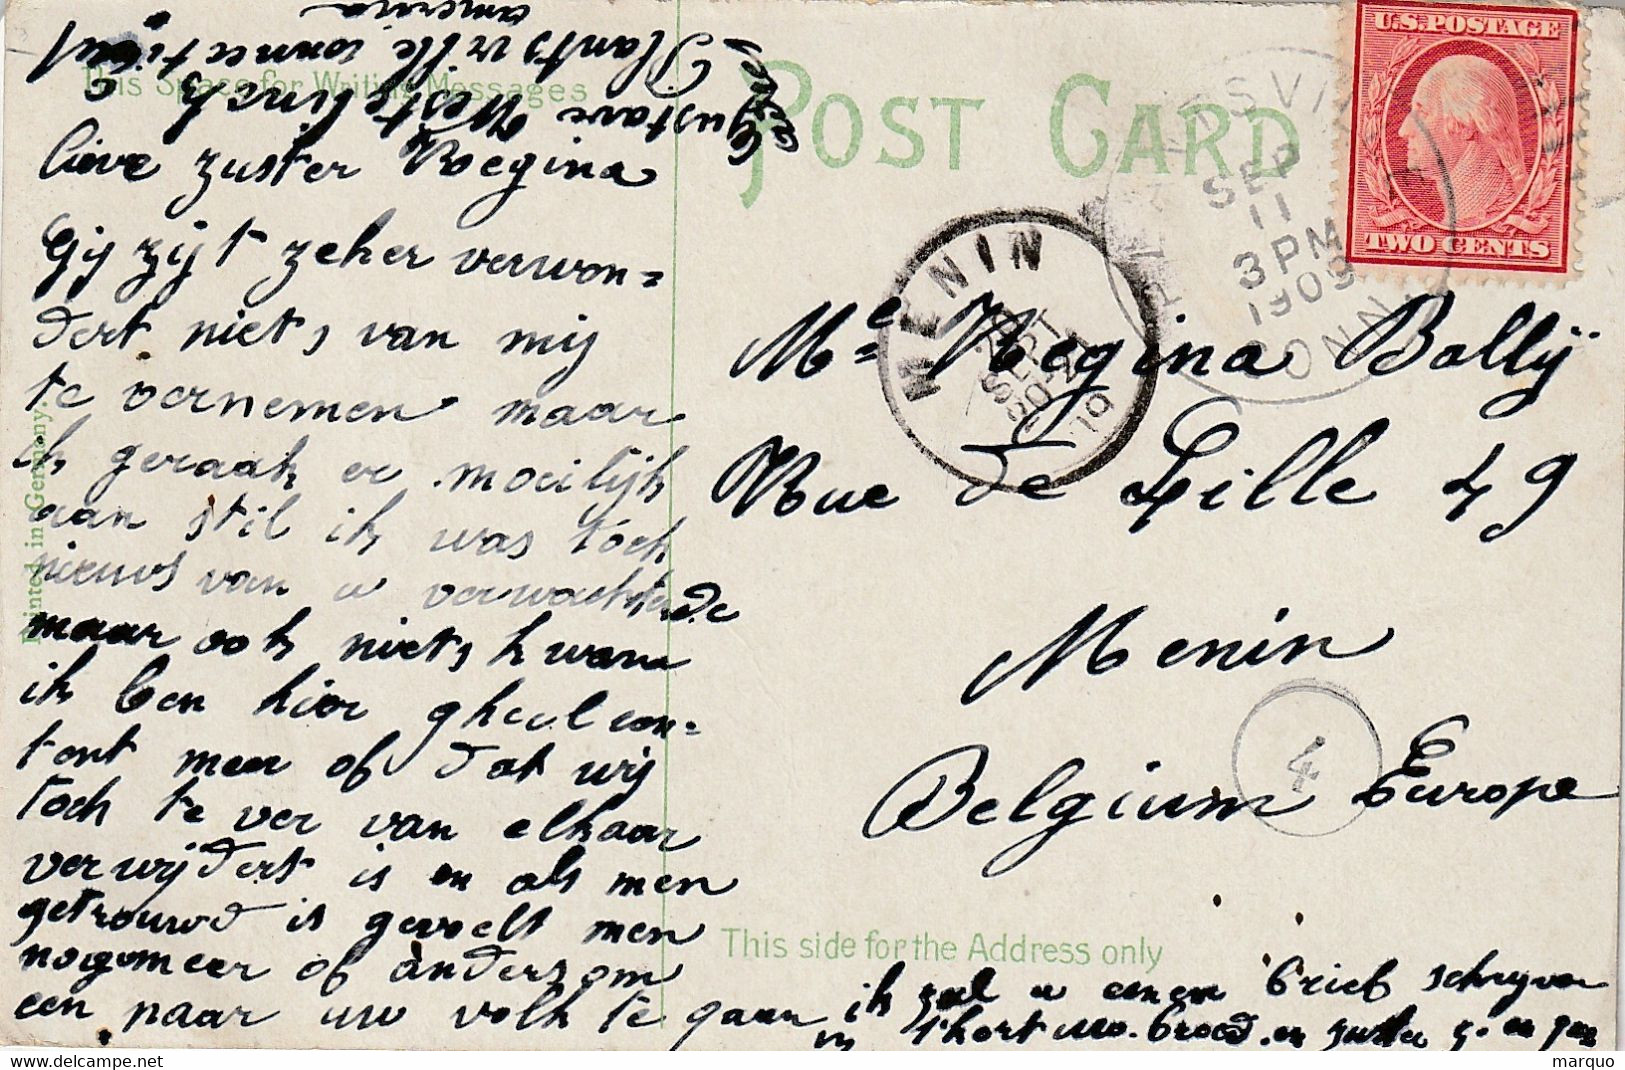 This Space for Writing Messages
POST CARD
U.S. POSTAGE
TWO CENTS
SEP
11
3 PM
1909
CONN.
MENIN
Gustave Westelinck
Plantsville connecticut
america
lieve zuster Roegina
Gij zijt zeker verwon=
dert niets van mij
te vernemen maar
ik geraak er moeilijk
aan stil ik was toch
nieuws van u verwachtende
maar ook niets kwam
ik ben hier gheel con=
tent meer of dat wij
toch te ver van elkaar
verwijdert is en als men
getrouwd is gevoelt men
nogmeer of anders om
een naar uw volk te gaan
ik zal u eenen brief schryven
in 't kort uw. broed. en zuster
Me Regina Bolly
Rue de Lille 49
Menin
Belgium Europe
4
This side for the Address only
Printed in Germany.
delcampe.net
marquo